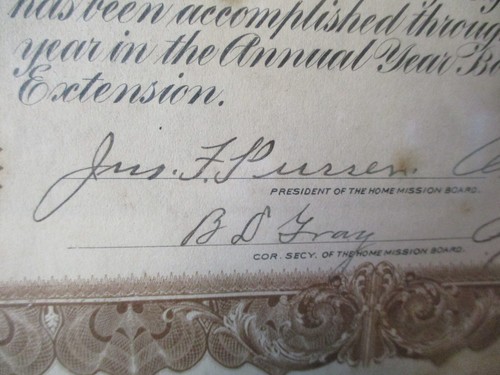 has been accomplished throug
year in the Annual Year Bo
Extension.
Jno. F. Purser
PRESIDENT OF THE HOME MISSION BOARD.
B D Gray
COR. SECY. OF THE HOME MISSION BOARD.